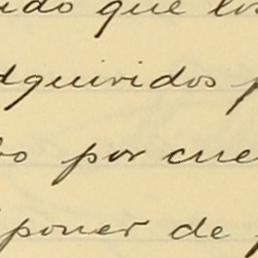 ido que los
dquiridos p
o por cue
poner de p